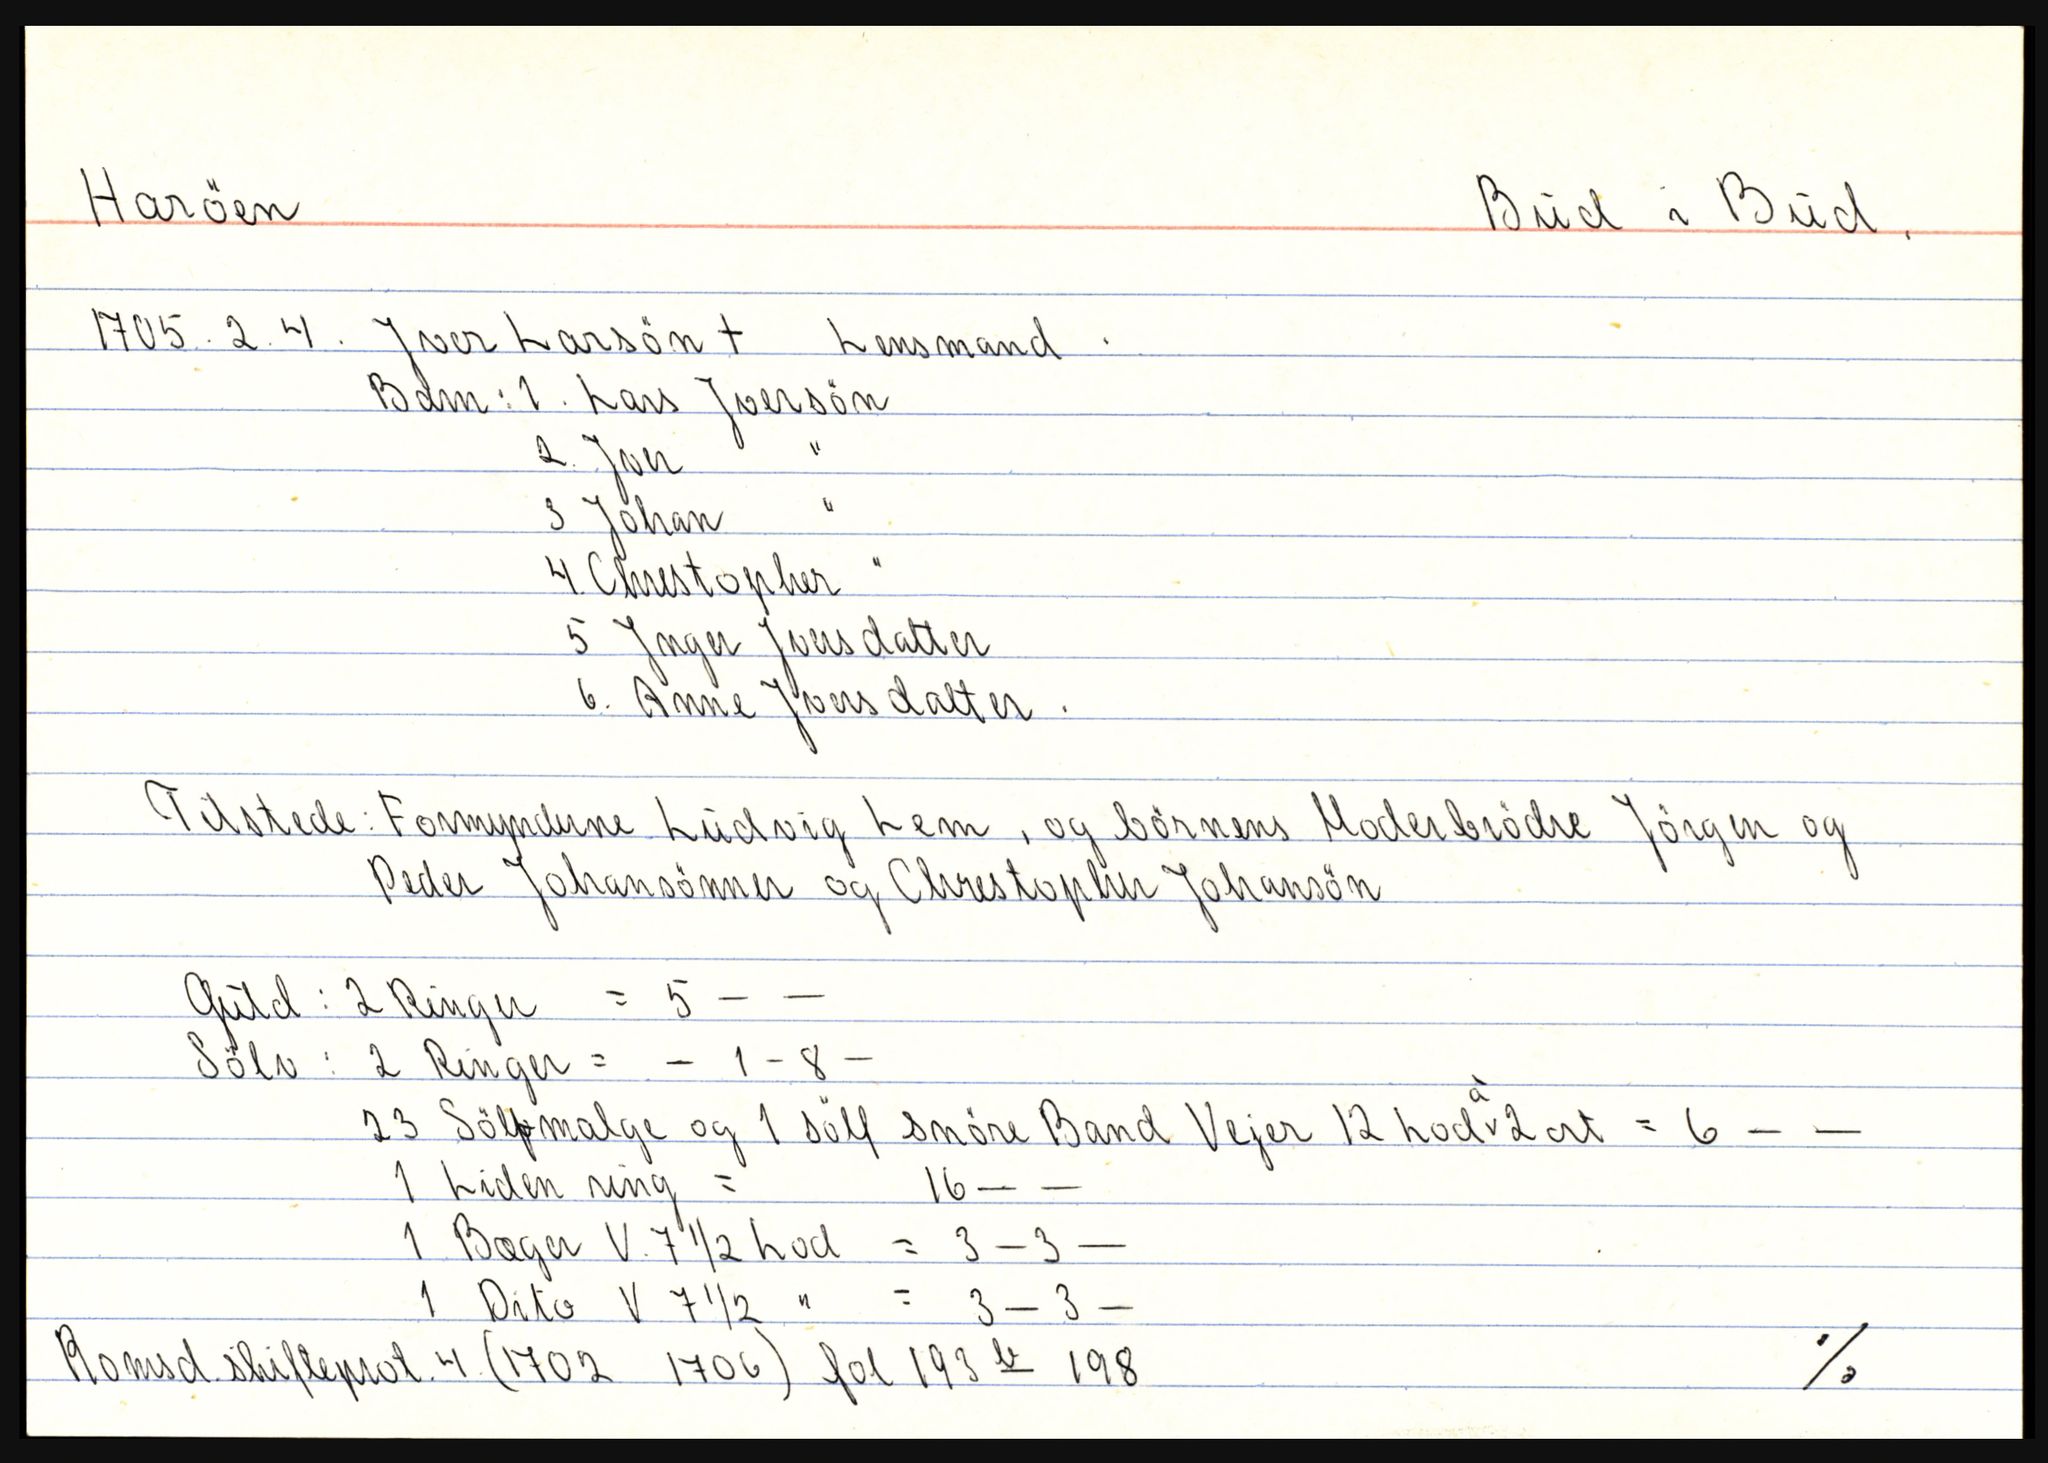 Haröen Büd i Büd.
1705. 2. 4. Jver Larsön † Lensmand.
Barn: 1. Lars Jversön
2. Jver "
3 Johan "
4. Chrestopher "
5 Jnger Jversdatter
6. Anne Jversdatter.
Tilstede: Formynderne Lüdvig Lem, og börnens Moderbrödre Jörgen og
Peder Johansönner og Chrestopher Johansön
Güld: 2 Ringer = 5 — —
Sölv: 2 Ringer = — 1 - 8 —
23 Sölfmalge og 1 sölf snöre Band Vejer 12 Lod à 2 ort = 6 — —
1 Liden ring = 16 — —
1 Bæger V. 7 1/2 Lod = 3 — 3 —
1 Dito V 7 1/2 " = 3 — 3 —
Romsd. skifteprot. 4. (1702 1706) fol 193 b 198 ./.